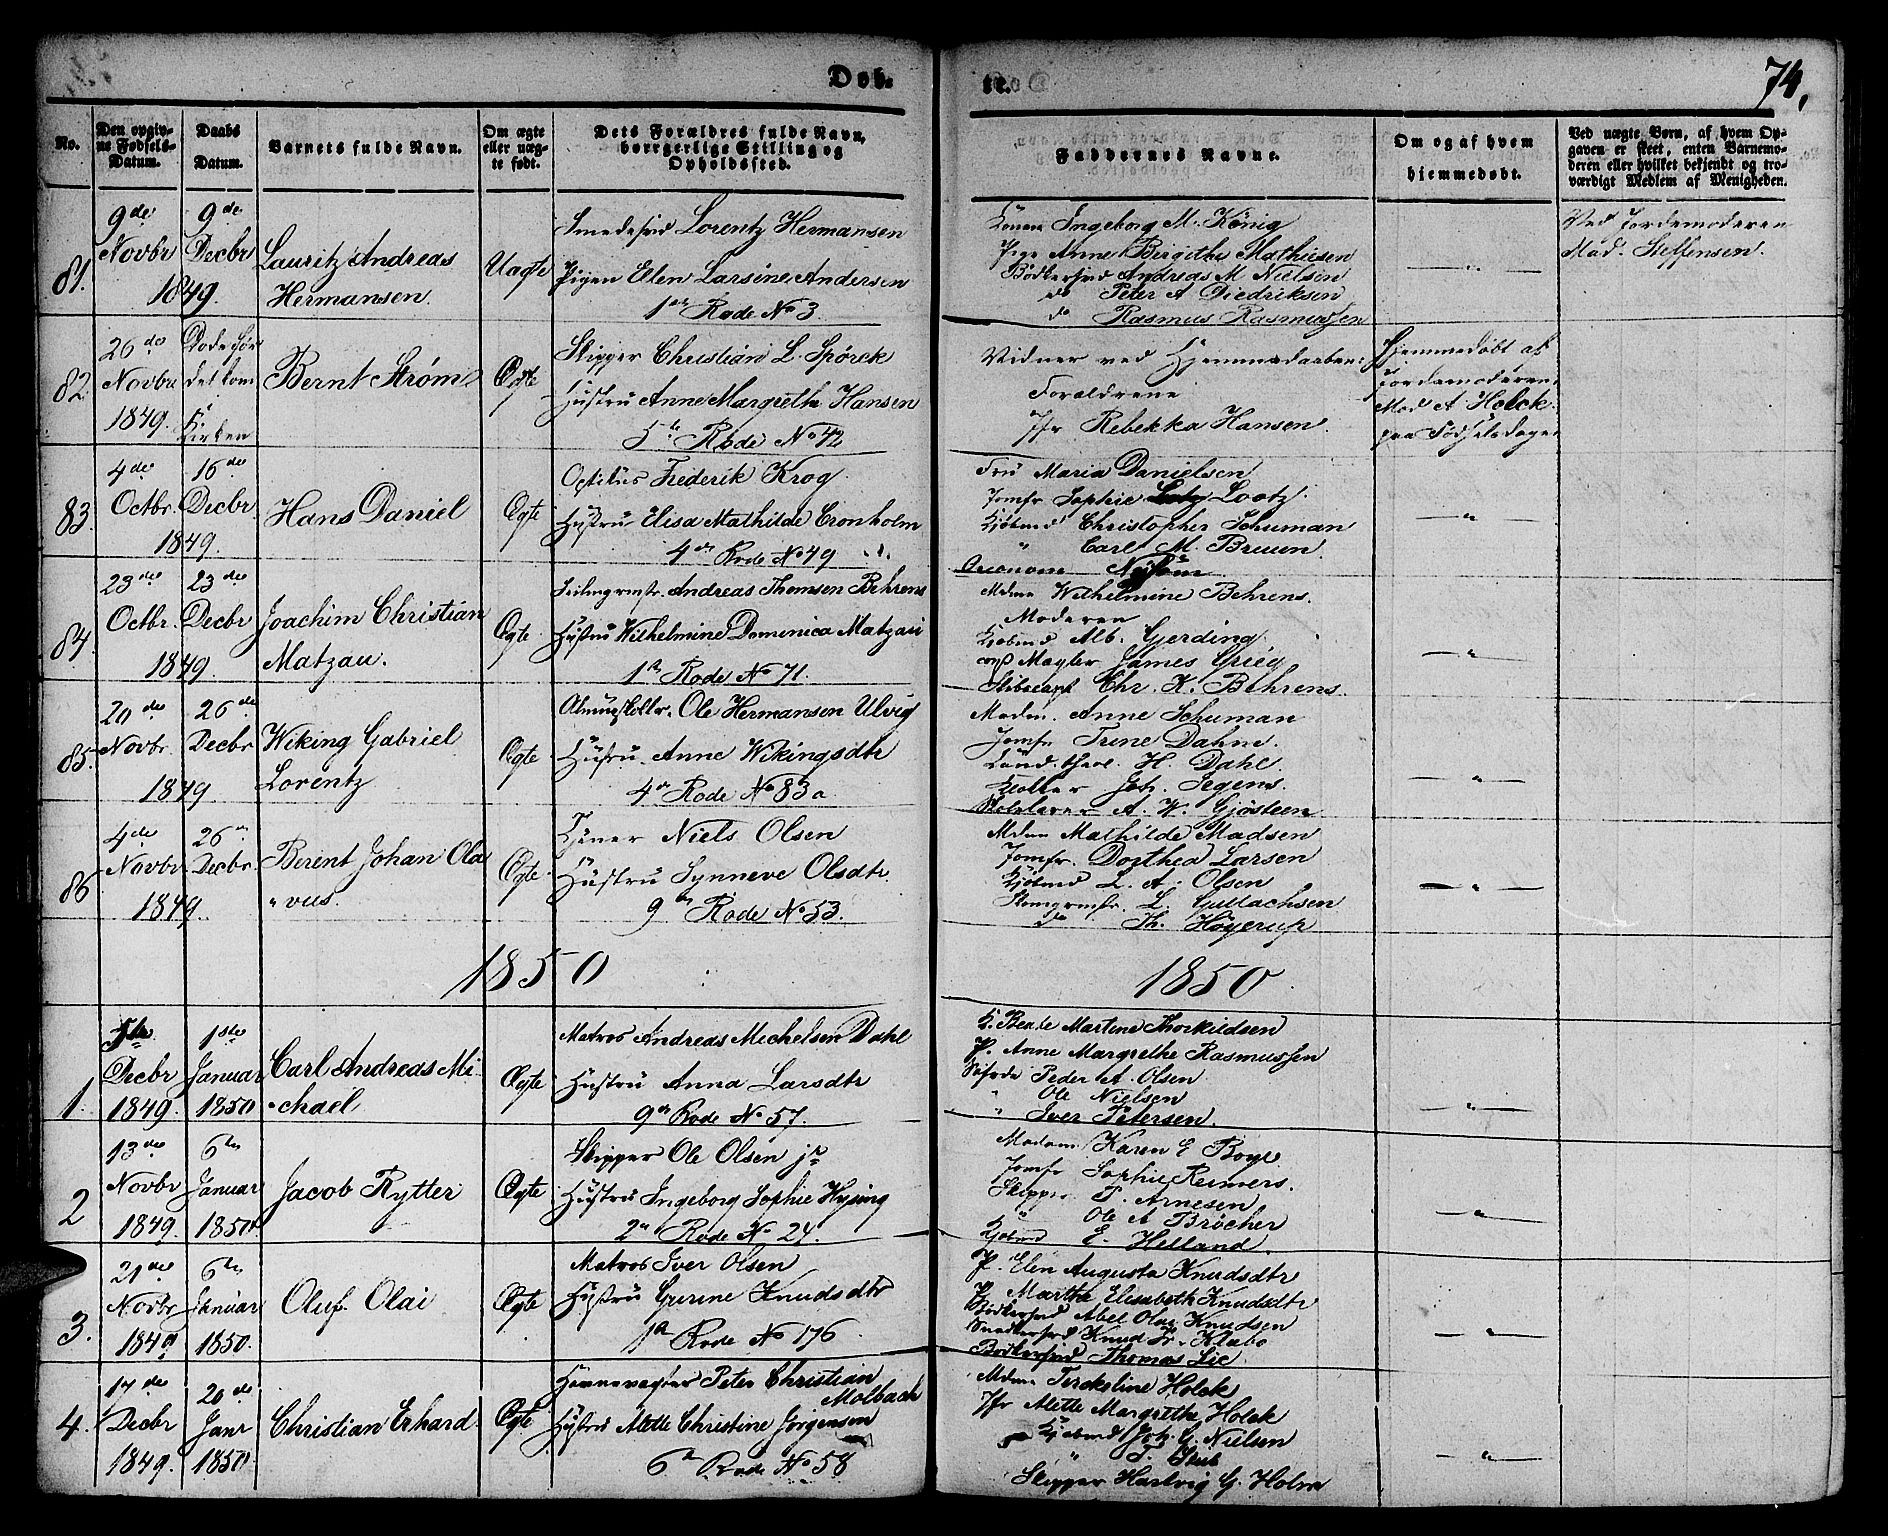 Døb-
te.
74,
No.
Den opgiv-
ne Fødsels-
Datum.
Daabs
Datum.
Barnets fulde Navn.
Om ægte
eller uæg-
te født.
Dets Forældres fulde Navn,
borgerlige Stilling og
Opholdssted.
Faddernes Navne.
Om og af hvem
hjemmedøbt.
Ved uægte Børn, af hvem Op-
gaven er skeet, enten Barnemo-
deren eller hvilket bekjendt og tro-
værdigt Medlem af Menigheden.
81.
9de
Novbr
9de
Decbr
1849.
Lauritz Andreas
Hermansen
Uægte
Smedesvd Lorentz Hermansen
Pigen Ellen Larsine Andersen
1ste Rode No 3.
Konen Ingeborg M. König
Pige Anne Birgithe Mathiesen
Bödkersvd Andreas M Nielsen
do Peter A Diedriksen
do Rasmus Rasmussen
Ved Jordemoderen
Mad. Steffensen.
82.
26de
Novbr
1849.
Döde för
det kom
i
Kirken
Bernt Strøm
Ægte
Skipper Christian L. Spörck
Hustru Anne Margrethe Hansen
5te Rode No 42
Vidner ved Hjemmedaaben:
Forældrene
Jfr Rebekka Hansen.
Hjemmedöbt af
Jordemoderen
Mad A Holck
paa Födselsdagen
83.
4de
Octbr.
16de
Decbr
1849.
Hans Daniel
Ægte
Frederik Krog
Hustru Elisa Mathilde Cronholm
4de Rode No 49
Fru Maria Danielsen
Jomfr Sophie Lootz.
Kjöbmd Christopher Schuman
" Carl M. Bruun.
84.
23de
Octbr.
23de
Decbr
1849.
Joachim Christian
Matzau.
Ægte
Andreas Thomsen Behrens
Hustru Wilhelmine Dominica Matzau
1ste Rode No 71.
Mdme Wilhelmine Behrens.
Moderen
Kjöbmd Alb. Gjerding
Mægler James Grieg
Skibscapt Chr. K. Behrens.
85.
20de
Novbr.
26de
Decbr
1849.
Wiking Gabriel
Lorentz
Ægte
Ole Hermansen Ulvig
Hustru Anne Wikingsdtr
4de Rode No 83a
Madm. Anne Schuman
Jomfr Trine Dahne.
Cand. theol. H. Dahl
Joh. Jegens.
Skolelærer A. W. Gjösteen
86
4de
Novbr
26de
Decbr.
1849.
Berent Johan Ola
"vus.
Ægte
Tjener Niels Olsen
Hustru Synneve Olsdtr.
9de Rode No 53.
Mdme Mathilde Madsen
Jomfr. Dorthea Larsen
Kjöbmd L. A. Olsen
L. Gullachsen
do Th. Höyerup
1850
1850.
1.
5te
Decbr
1849.
1ste
Januar
1850
Carl Andreas Mi-
-chael
Ægte
Matros Andreas Michelsen Dahl
Hustru Anna Larsdtr
9de Rode No 57.
K. Beate Martine Thorkildsen
P. Anne Margrethe Rasmussen
Peder A. Olsen
" Ole Nielsen
" Iver Petersen.
2
13de
Novbr
1849.
6te
Januar
1850.
Jacob Rytter
Ægte
Skipper Ole Olsen jr
Hustru Ingeborg Sophie Hysing
2den Rode No 24.
Madam Karen E Boye
Jomfr Sophie Reimers.
Skipper T. Arnesen
" Ole A Bröcher
Kjöbmd E. Helland.
3.
21de
Novbr
1849
6te
Januar
1850.
Oluf Olai
Ægte
Matros Iver Olsen
Hustru Gurine Knudsdtr
1ste Rode No 176
P. Elen Augusta Knudsdtr
P. Martha Elisabeth Knudsdtr
Bödkersvd Abel Olai Knudsen
Snedkersvd Knud Fr. Klabo
Bödkersvd Thomas Lie
4.
17de
Decbr
1849.
20de
Janr
1850.
Christian Erhard
Ægte
Havnevagter Peter Christian
Molbach
Hustru Alette Christine Jörgensen
6te Rode No 58
Mdme Terkeline Holck
Jfr Alette Margrethe Holck
Kjöbmd Joh. G. Nielsen
" T. Stub
Skipper Hartvig G. Holm